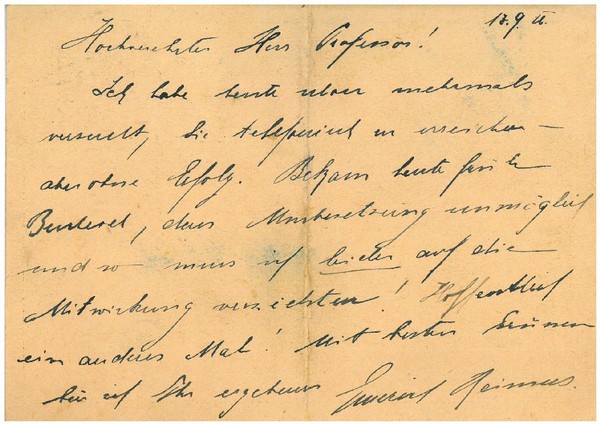 13.9.
Hochverehrter Herr Professor!
Ich habe heute mehrmals
versucht, Sie telefonisch zu erreichen –
aber ohne Erfolg. Bekam heute früh
Bescheid, dass Umbesetzung unmöglich
und so muss ich leider auf die
Mitwirkung verzichten! Hoffentlich
ein anderes Mal! Mit besten Grüssen
bin ich Ihr ergebener